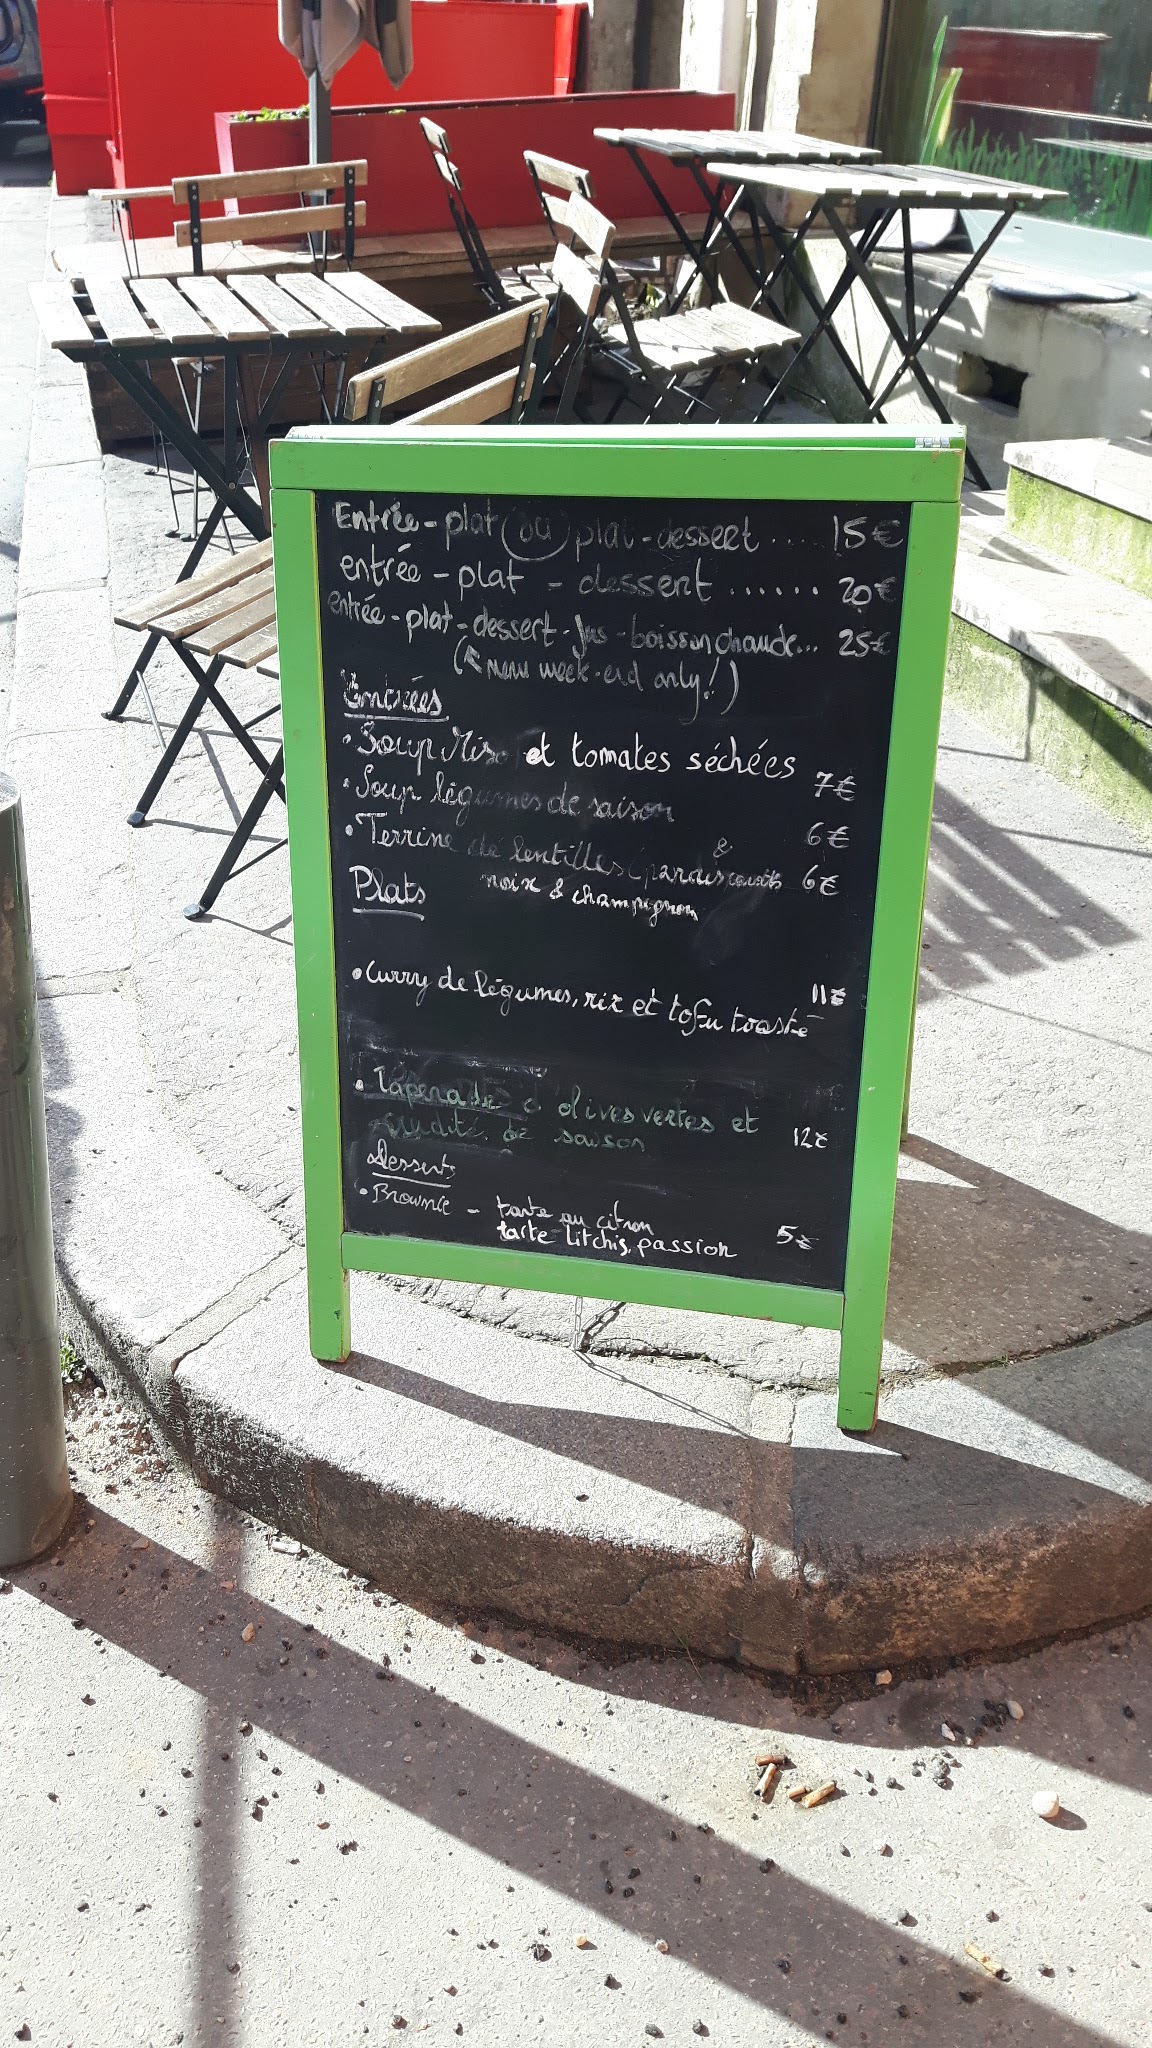 Entrée - plat ou plat - dessert .... 15€
entrée - plat - dessert ...... 20€
entrée - plat - dessert - jus - boisson chaude... 25€
(↖ menu week-end only!)
Entrées
• Soup Miso et tomates séchées 7€
• Soup légumes de saison 6€
• Terrine de lentilles & 6€
noix & champignon
Plats
• Curry de légumes, riz et tofu toasté 11€
• Tapenade d'olives vertes et
crudité de saison 12€
Desserts
• Brownie - tarte au citron
tarte litchis, passion 5€